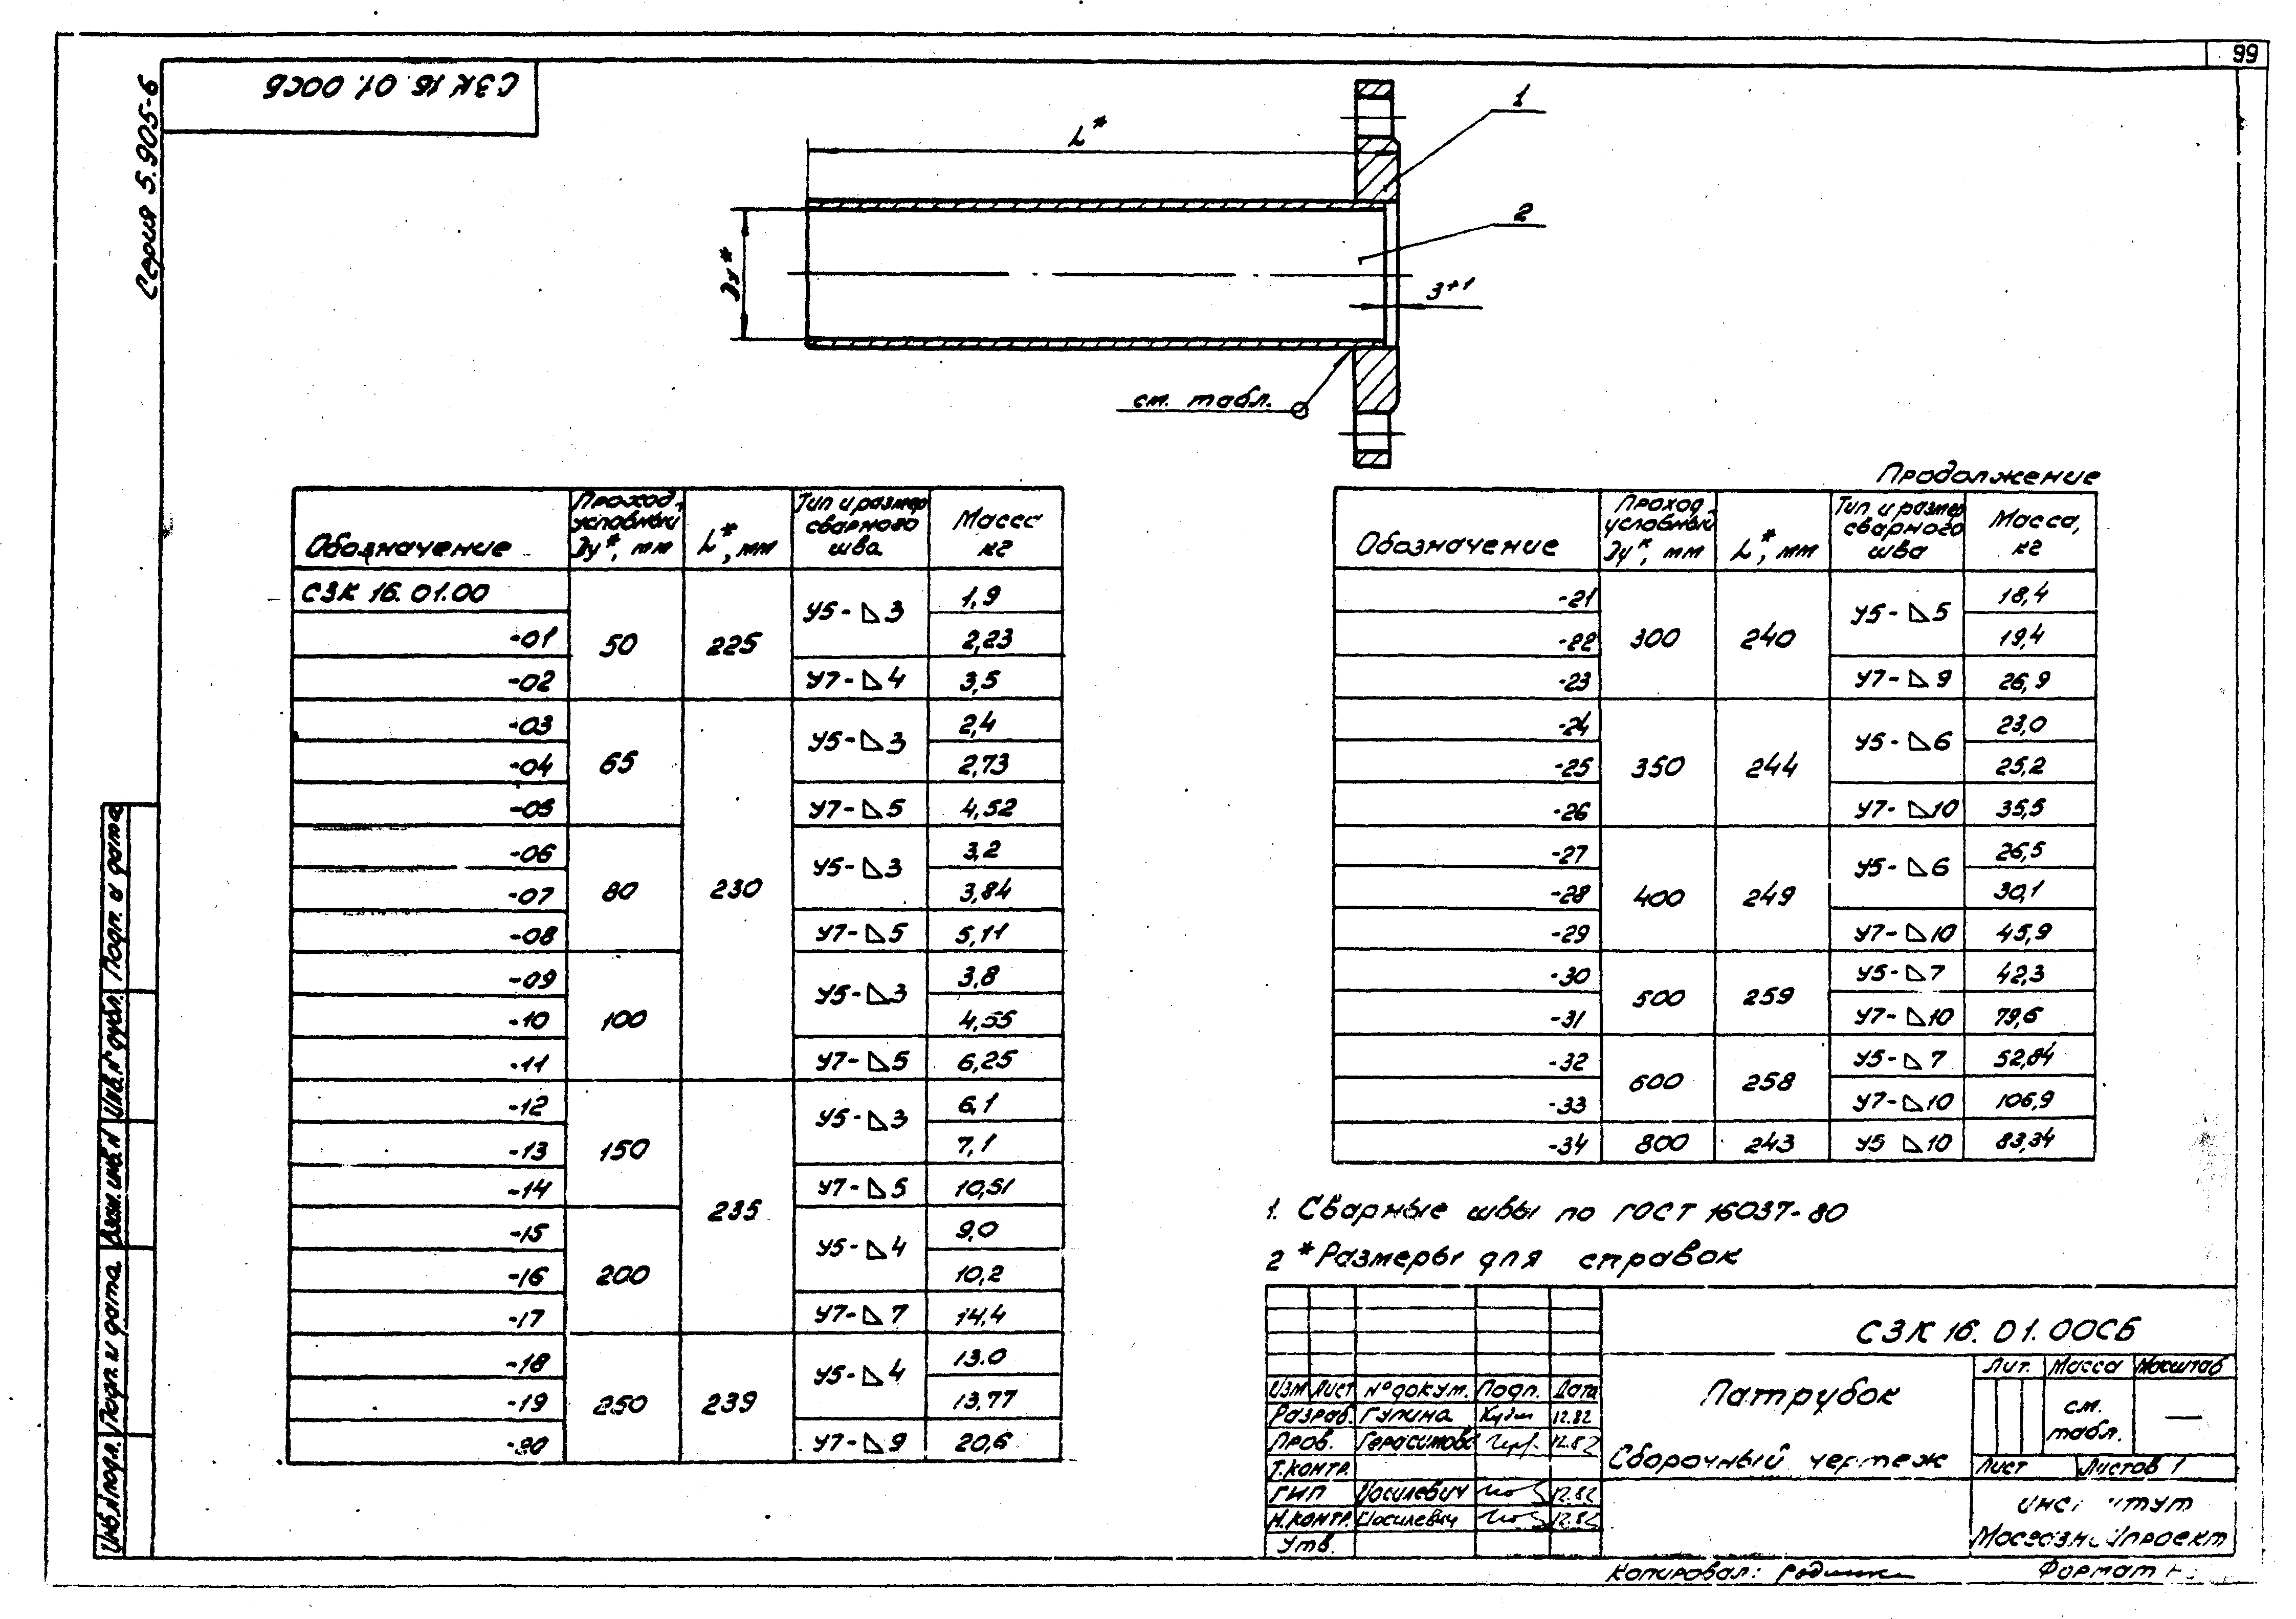 99
СЗК 16.01.00СБ
Серия 5.905-6
L*
1
2
Ду*
3+1
см. табл.
Обозначение | Проход условный Ду*, мм | L*, мм | Тип и размер сварного шва | Масса кг
СЗК 16.01.00 | 50 | 225 | У5-◺3 | 1,9
-01 | 2,23
-02 | У7-◺4 | 3,5
-03 | 65 | 230 | У5-◺3 | 2,4
-04 | 2,73
-05 | У7-◺5 | 4,52
-06 | 80 | У5-◺3 | 3,2
-07 | 3,84
-08 | У7-◺5 | 5,11
-09 | 100 | У5-◺3 | 3,8
-10 | 4,55
-11 | У7-◺5 | 6,25
-12 | 150 | 235 | У5-◺3 | 6,1
-13 | 7,1
-14 | У7-◺5 | 10,51
-15 | 200 | У5-◺4 | 9,0
-16 | 10,2
-17 | У7-◺7 | 14,4
-18 | 250 | 239 | У5-◺4 | 13.0
-19 | 13,77
-20 | У7-◺9 | 20,6
Продолжение
Обозначение | Проход условный Ду*, мм | L*, мм | Тип и размер сварного шва | Масса, кг
-21 | 300 | 240 | У5-◺5 | 18,4
-22 | 19,4
-23 | У7-◺9 | 26,9
-24 | 350 | 244 | У5-◺6 | 23,0
-25 | 25,2
-26 | У7-◺10 | 35,5
-27 | 400 | 249 | У5-◺6 | 26,5
-28 | 30,1
-29 | У7-◺10 | 45,9
-30 | 500 | 259 | У5-◺7 | 42,3
-31 | У7-◺10 | 79,6
-32 | 600 | 258 | У5-◺7 | 52,84
-33 | У7-◺10 | 106,9
-34 | 800 | 243 | У5 ◺10 | 83,34
1. Сварные швы по ГОСТ 16037-80
2 *Размеры для справок
СЗК 16.01.00СБ
Патрубок
Сборочный чертеж
Лит. Масса Масштаб
см. табл. —
Лист Листов 1
Изм Лист №докум. Подп. Дата
Разраб. Гулина 12.82
Пров. Герасимова 12.82
Т.контр.
ГИП Иосилевич 12.82
Н.контр. Иосилевич 12.82
Утв.
Копировал:
Формат
Подп. и дата
Инв.№дубл.
Взам.инв.№
Подп. и дата
Инв.№подл.